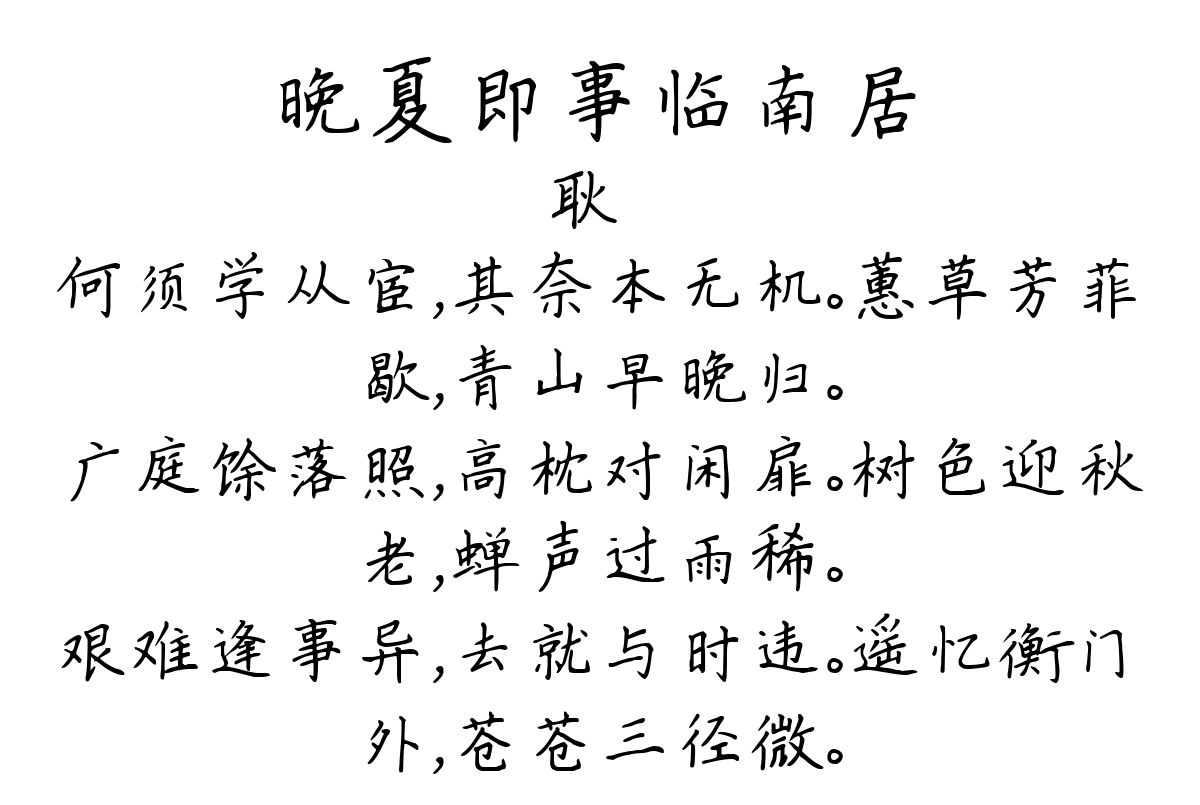 晚夏即事临南居
耿
何须学从宦,其奈本无机。蕙草芳菲
歇,青山早晚归。
广庭馀落照,高枕对闲扉。树色迎秋
老,蝉声过雨稀。
艰难逢事异,去就与时违。遥忆衡门
外,苍苍三径微。